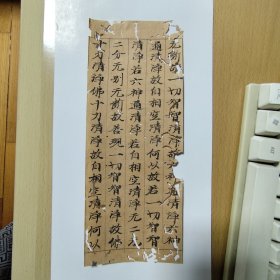 无断故一切智智清淨故六神
通清淨六神通清淨故自相空清淨何以故若一切智智
清淨若六神通清淨若自相空清淨无二无
二分无别无断故善現一切智智清淨故佛
十力清淨佛十力清淨故自相空清淨何以